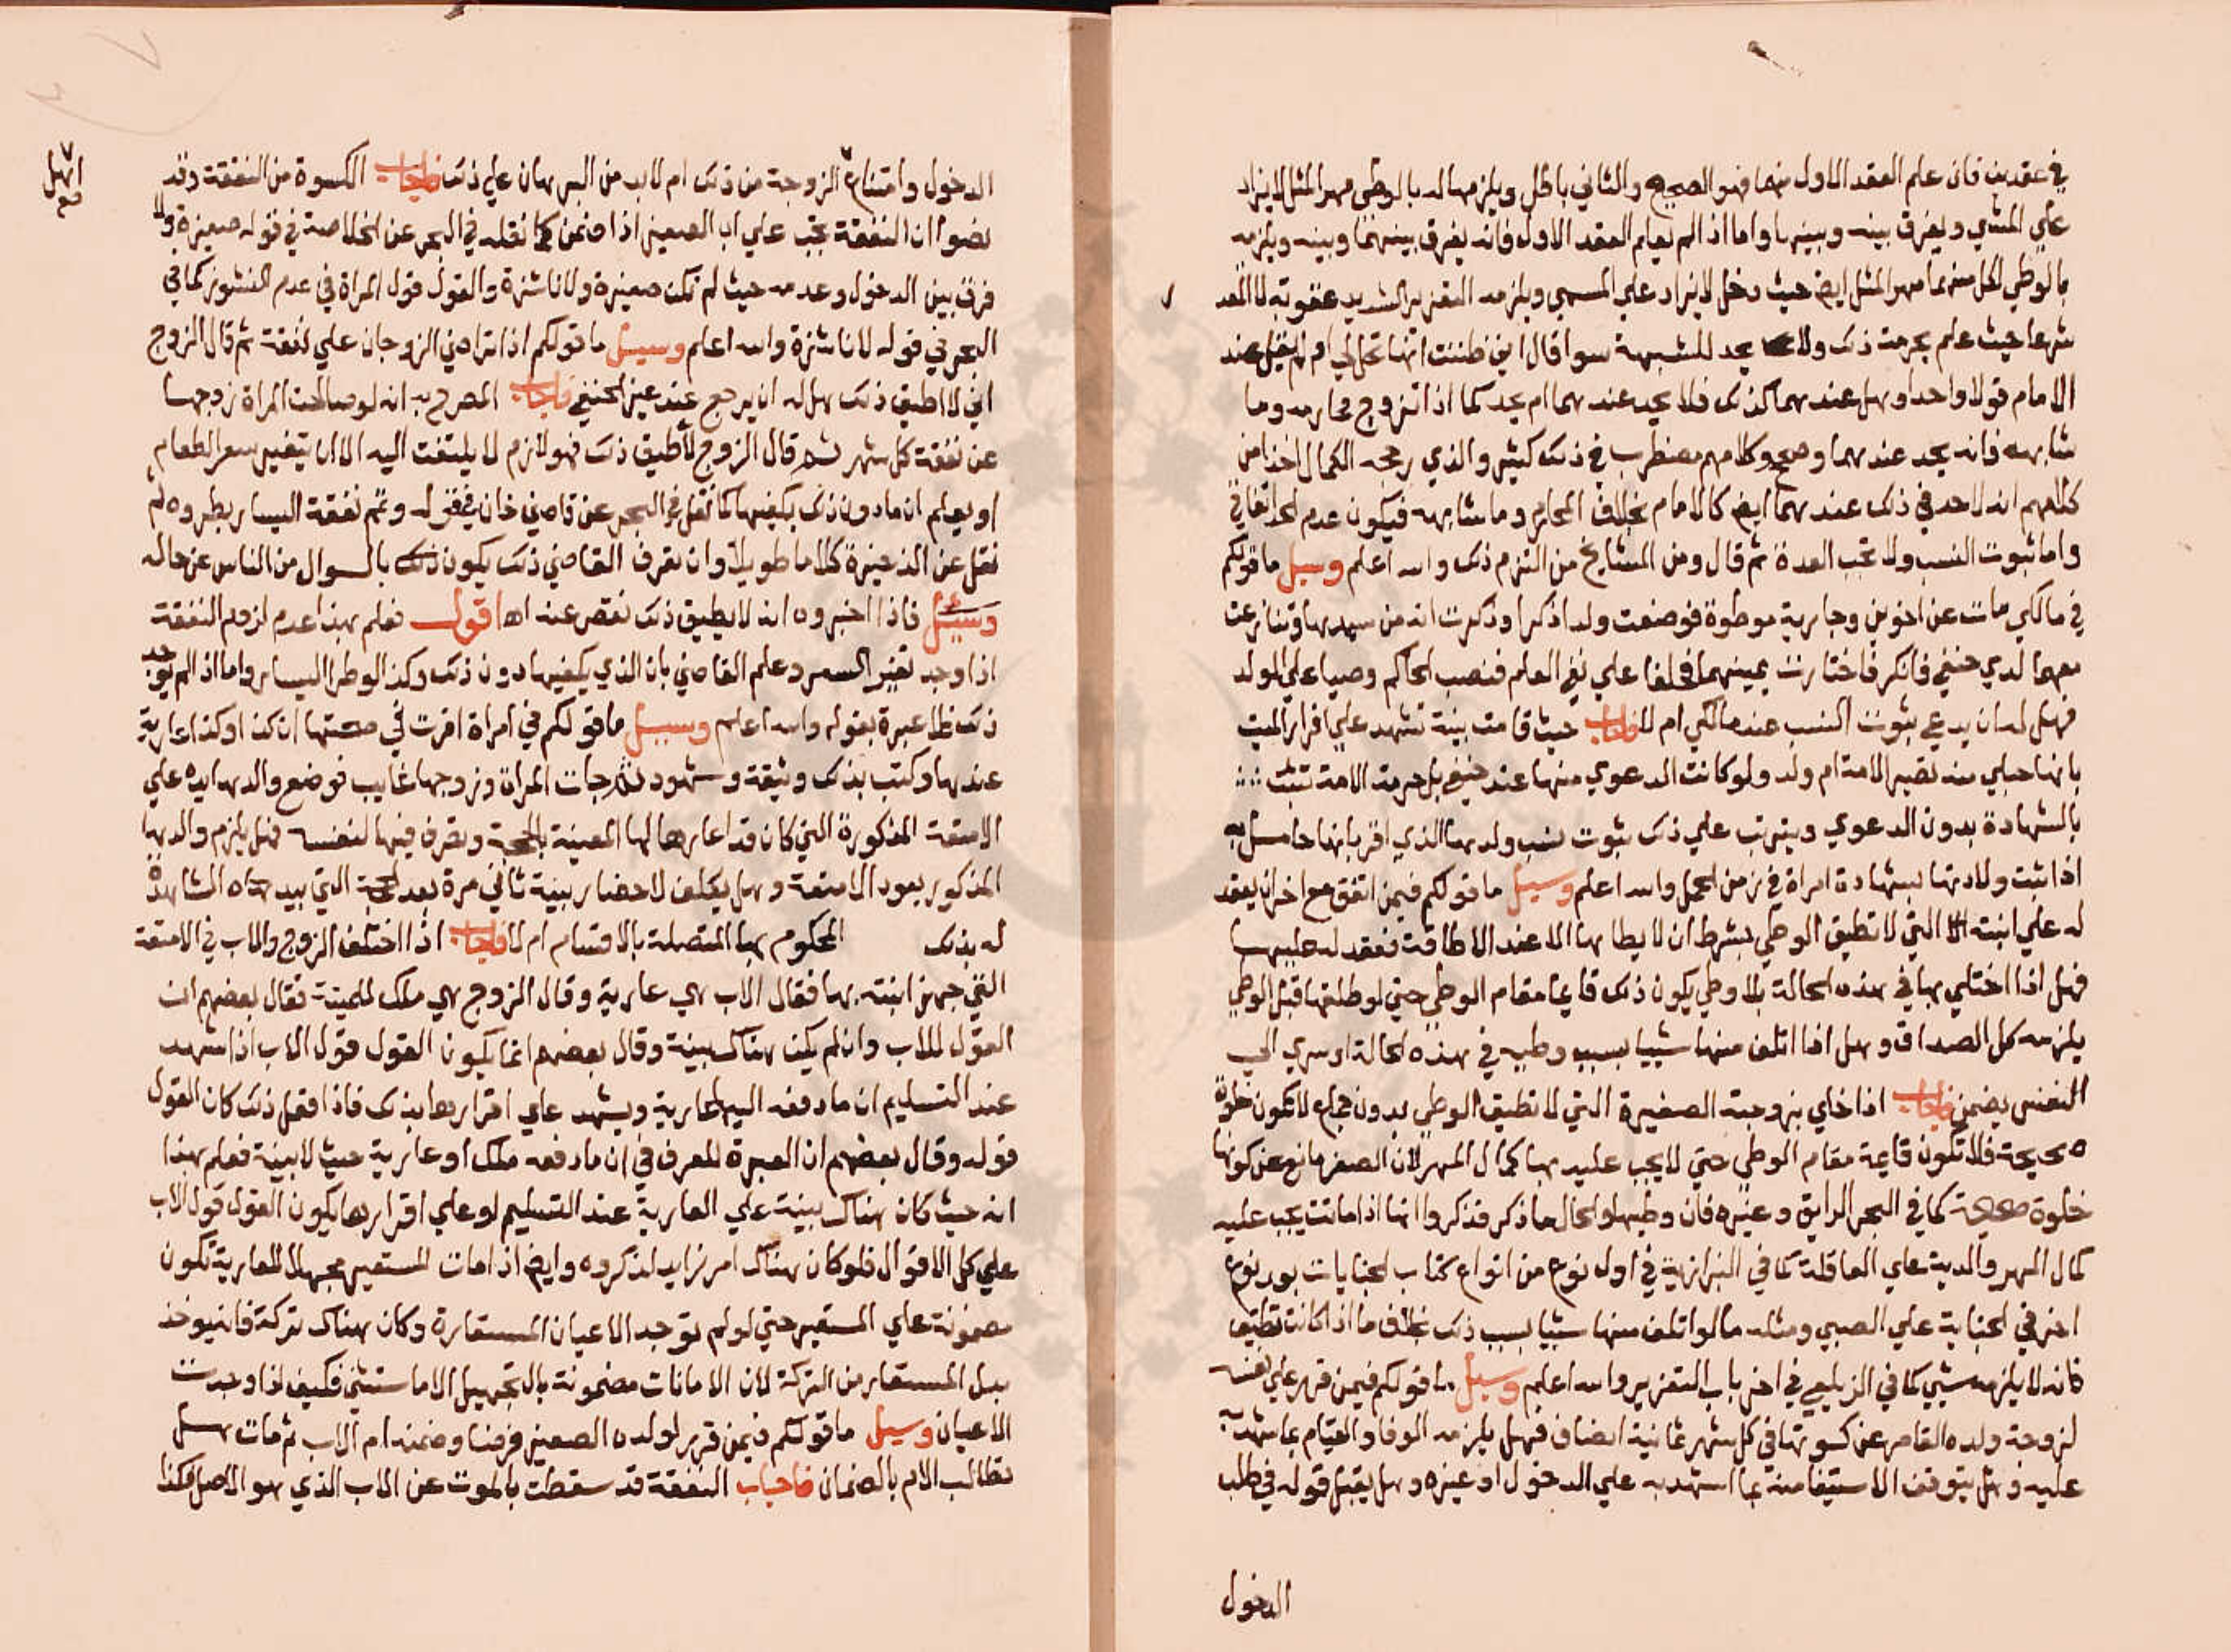 في عقدين فان علم العقد الاول منهما فهو الصحيح والثاني باطل ويلزمها له بالوطي مهر المثل لا يزاد
علي المسمي ويفرق بينه وبينها واما اذا لم يعلم العقد الاول فانه يفرق بينهما وبينه ويلزمه
بالوطي لكل منهما مهر المثل ايض حيث دخل لا يزاد علي المسمي ويلزمه التعزير الشديد عقوبة لا الحد
شرعا حيث علم بحرمة ذلك ولا يحد للشبهة سوا قال اني ظننت انها تحل لي او لم يقل عند
الامام قولا واحدا وهل عندهما كذلك فلا يحد عندهما ام يحد كما اذا تزوج محارمه وما
شابهه فانه يحد عندهما وكلامهم مضطرب في ذلك كثير والذي رجحه الكمال اخذا من
كلامهم انه لاحد في ذلك عندهما ايض كالامام بخلاف المحارم وما شابهه فيكون عدم الحد اتفاقي
واما ثبوت النسب ولا تجب العدة ثم قال ومن المشايخ من التزم ذلك والله اعلم وسيل ما قولكم
في مالكي مات عن اخوين وجارية موطوة فوضعت ولدا ذكرا وذكرت انه من سيدها وتنازعت
معهما لدي حنفي فانكر فاختارت يمينهما فحلفا علي نفي العلم فنصب الحاكم وصيا علي الولد
فهل له ان يدعي بثبوت النسب عند مالكي ام لا فاجاب حيث قامت بينة تشهد علي اقرار الميت
بانها حبلي منه تصير الامة ام ولد ولو كانت الدعوي منها عند حنفي بل حرمة الامة تثبت
بالشهادة بدون الدعوي ويترتب علي ذلك ثبوت نسب ولدها الذي اقر بانها حامل به
اذا ثبت ولادتها بشهادة امراة في زمن الحمل والله اعلم وسيل ما قولكم فيمن اتفق مع اخر ان يعقد
له علي ابنته التي لا تطيق الوطي بشرط ان لا يطاها الا عند الاطاقة فعقد له عليها
فهل اذا اختلي بها في هذه الحالة بلا وطي يكون ذلك قايما مقام الوطي حتي لو طلقها قبل الوطي
يلزمه كل الصداق وهل اذا اتلف منها شييا بسبب وطيه في هذه الحالة او سري الي
النفس يضمن فاجاب اذا خلي بزوجته الصغيرة التي لا تطيق الوطي بدون جماع لا تكون خلوة
صحيحة فلا تكون قايمة مقام الوطي حتي لا يجب عليه بها كمال المهر لان الصغر مانع عن كونها
خلوة صحيحة كما في البحر الرايق وغيره فان وطيها والحال ما ذكر فذكروا انها اذا ماتت يجب عليه
كمال المهر والدية علي العاقلة كما في البزازية في اول نوع من انواع كتاب الجنايات بعد نوع
اخر في الجناية علي الصبي ومثله ما لو اتلف منها شييا بسبب ذلك بخلاف ما اذا كانت تطيق
فانه لا يلزمه شي كما في الزيلعي في اخر باب التعزير والله اعلم وسيل ما قولكم فيمن قرر علي نفسه
لزوجة ولده القاصر عن كسوتها في كل شهر ثمانية انصاف فهل يلزمه الوفا والقيام بما شهد به
عليه وهل يتوقف الاستيفا منه بما استهد به علي الدخول او غيره وهل يقبل قوله في طلب
الدخول
الدخول وامتناع الزوجة من ذلك ام لا بد من البرهان علي ذلك فاجاب الكسوة من النفقة وقد
نصوا ان النفقة تجب علي اب الصغير اذا ضمن كما نقله في البحر عن الخلاصة في قوله صغيرة ولا
فرق بين الدخول وعدمه حيث لم تكن صغيرة ولا ناشزة والقول قول المراة في عدم النشوز كما في
البحر في قوله لا ناشزة والله اعلم وسيل ما قولكم اذا تراضي الزوجان علي نفقة ثم قال الزوج
اني لا اطيق ذلك هل له ان يرجع عند غير الحنفي فاجاب المصرح به انه لو صالحت المراة زوجها
عن نفقة كل شهر ثم قال الزوج لا اطيق ذلك فهو لازم لا يلتفت اليه الا ان يتغير سعر الطعام
او يعلم ان ما دون ذلك يكفيها كما نقل في البحر عن قاضي خان في قوله وتمم نفقة اليسار بطروه ثم
نقل عن الذخيرة كلاما طويلا وان تعرف القاضي ذلك يكون ذلك بالسوال من الناس عن حاله
وسيل فاذا اخبروه انه لا يطيق ذلك نقص عنه اه اقول فعلم بهذا عدم لزوم النفقة
اذا وجد تغير السعر وعلم القاضي بان الذي يكفيها دون ذلك وكذا لو طرا اليسار واما اذا لم يوجد
ذلك فلا عبرة بقوله والله اعلم وسيل ما قولكم في امراة اقرت في صحتها ان كذا وكذا عارية
عندها وكتب بذلك وثيقة وشهود ثم جات المراة وزوجها غايب فوضع والدها يده علي
الامتعة المذكورة التي كان قد اعارها لها المعينة بالحجة وتصرف فيها لنفسه فهل يلزم والدها
المذكور بعود الامتعة وهل يكلف لاحضار بينة ثاني مرة بعد الحجة التي بيده الشاهدة
له بذلك المحكوم بها المتصلة بالاقسام ام لا فاجاب اذا اختلف الزوج والاب في الامتعة
التي جهز ابنته بها فقال الاب هي عارية وقال الزوج هي ملك للميتة فقال بعضهم ان
القول للاب وان لم يكن هناك بينة وقال بعضهم انما يكون القول قول الاب اذا شهد
عند التسليم ان ما دفعه اليها عارية ويشهد علي اقرارها بذلك فاذا فعل ذلك كان القول
قوله وقال بعضهم ان العبرة للعرف في ان ما دفعه ملك او عارية حيث لا بينة فعلم بهذا
انه حيث كان هناك بينة علي العارية عند التسليم او علي اقرارها يكون القول قول الاب
علي كل الاقوال فلو كان هناك امر زايد لذكروه وايض اذا مات المستعير مجهلا للعارية تكون
مضمونة علي المستعير حتي لو لم توجد الاعيان المستعارة وكان هناك تركة فانه يوخذ
بدل المستعار من التركة لان الامانات مضمونة بالتجهيل الا ما استثني فكيف اذا وجدت
الاعيان وسيل ما قولكم فيمن قرر لولده الصغير فرضا وضمنه ام الاب ثم مات هل
تطالب الام بالضمان فاجاب النفقة قد سقطت بالموت عن الاب الذي هو الاصل فكذا